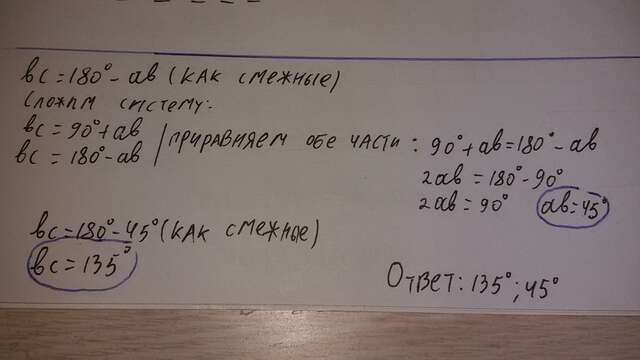 bc = 180° - ab (как смежные)
Сложим систему:
bc = 90° + ab
bc = 180° - ab / приравняем обе части: 90° + ab = 180° - ab
2ab = 180° - 90°
2ab = 90° ab = 45°
bc = 180° - 45° (как смежные)
bc = 135°
Ответ: 135°; 45°